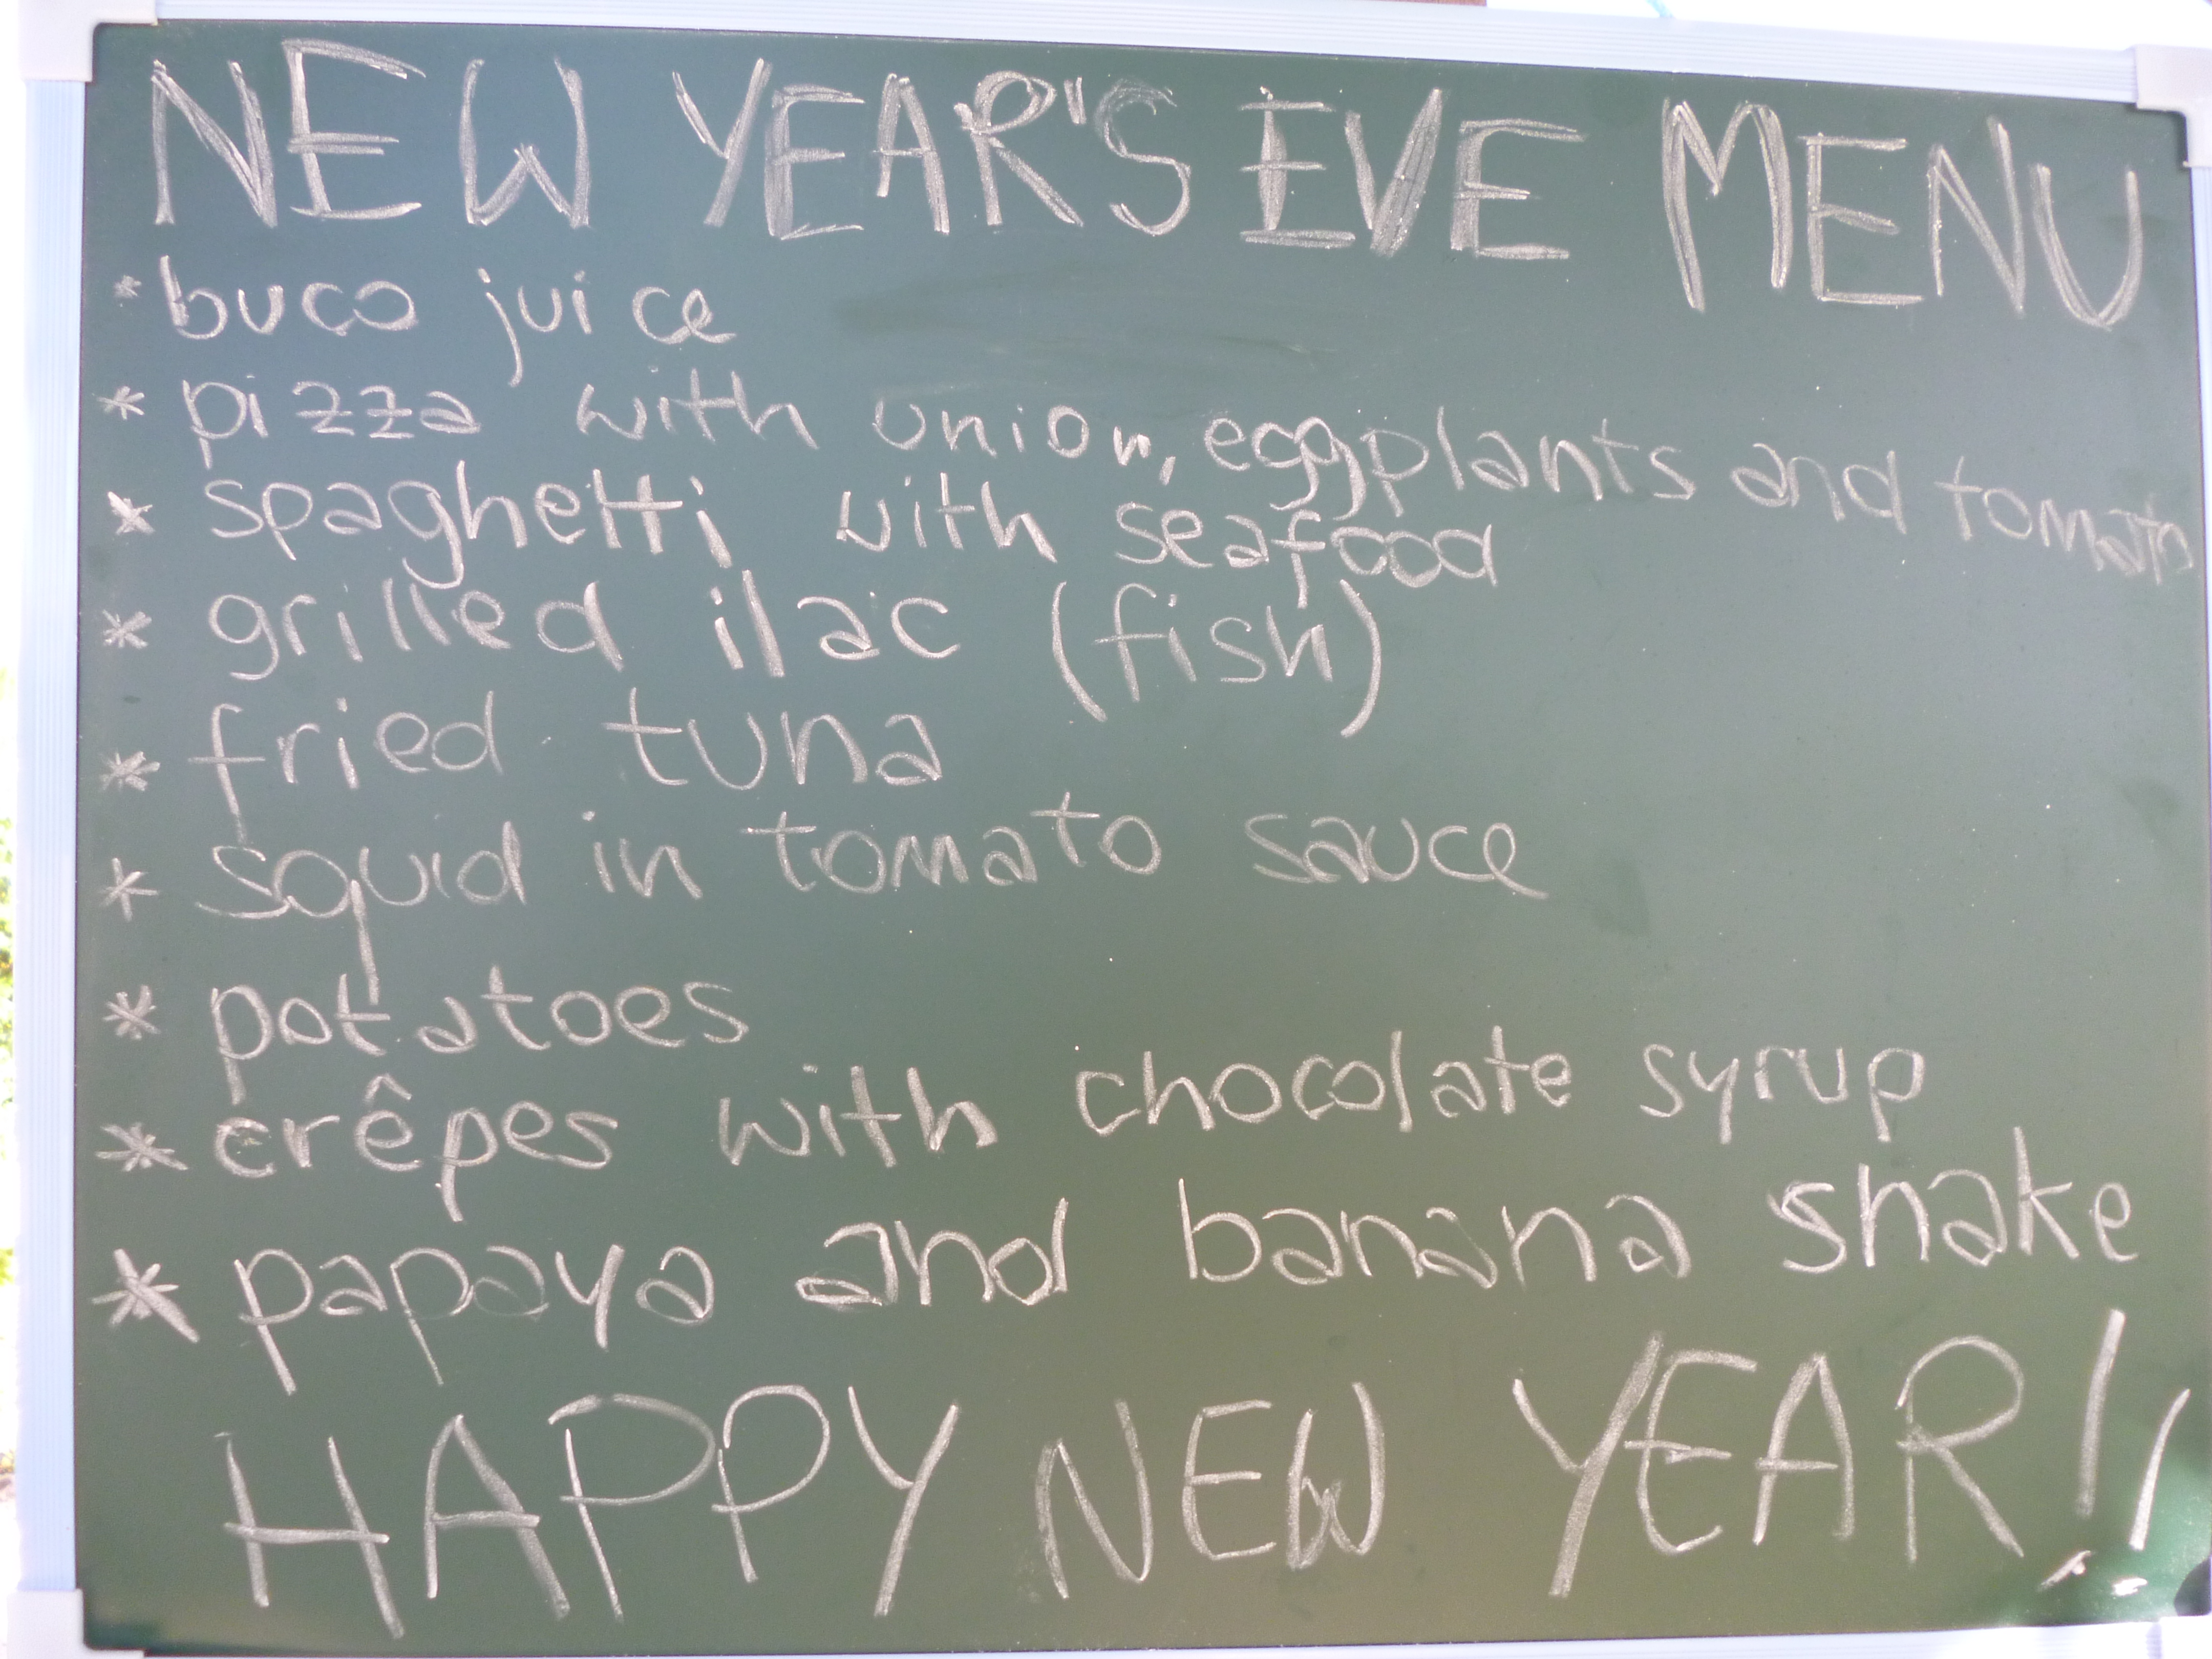 NEW YEAR'S EVE MENU
* buco juice
* pizza with union, eggplants and tomato
* spaghetti with seafood
* grilled ilac (fish)
* fried tuna
* squid in tomato sauce
* potatoes
* crêpes with chocolate syrup
* papaya and banana shake
HAPPY NEW YEAR!!